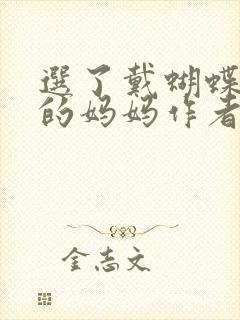 選了戴蝴蝶
的妈妈作者
金志文